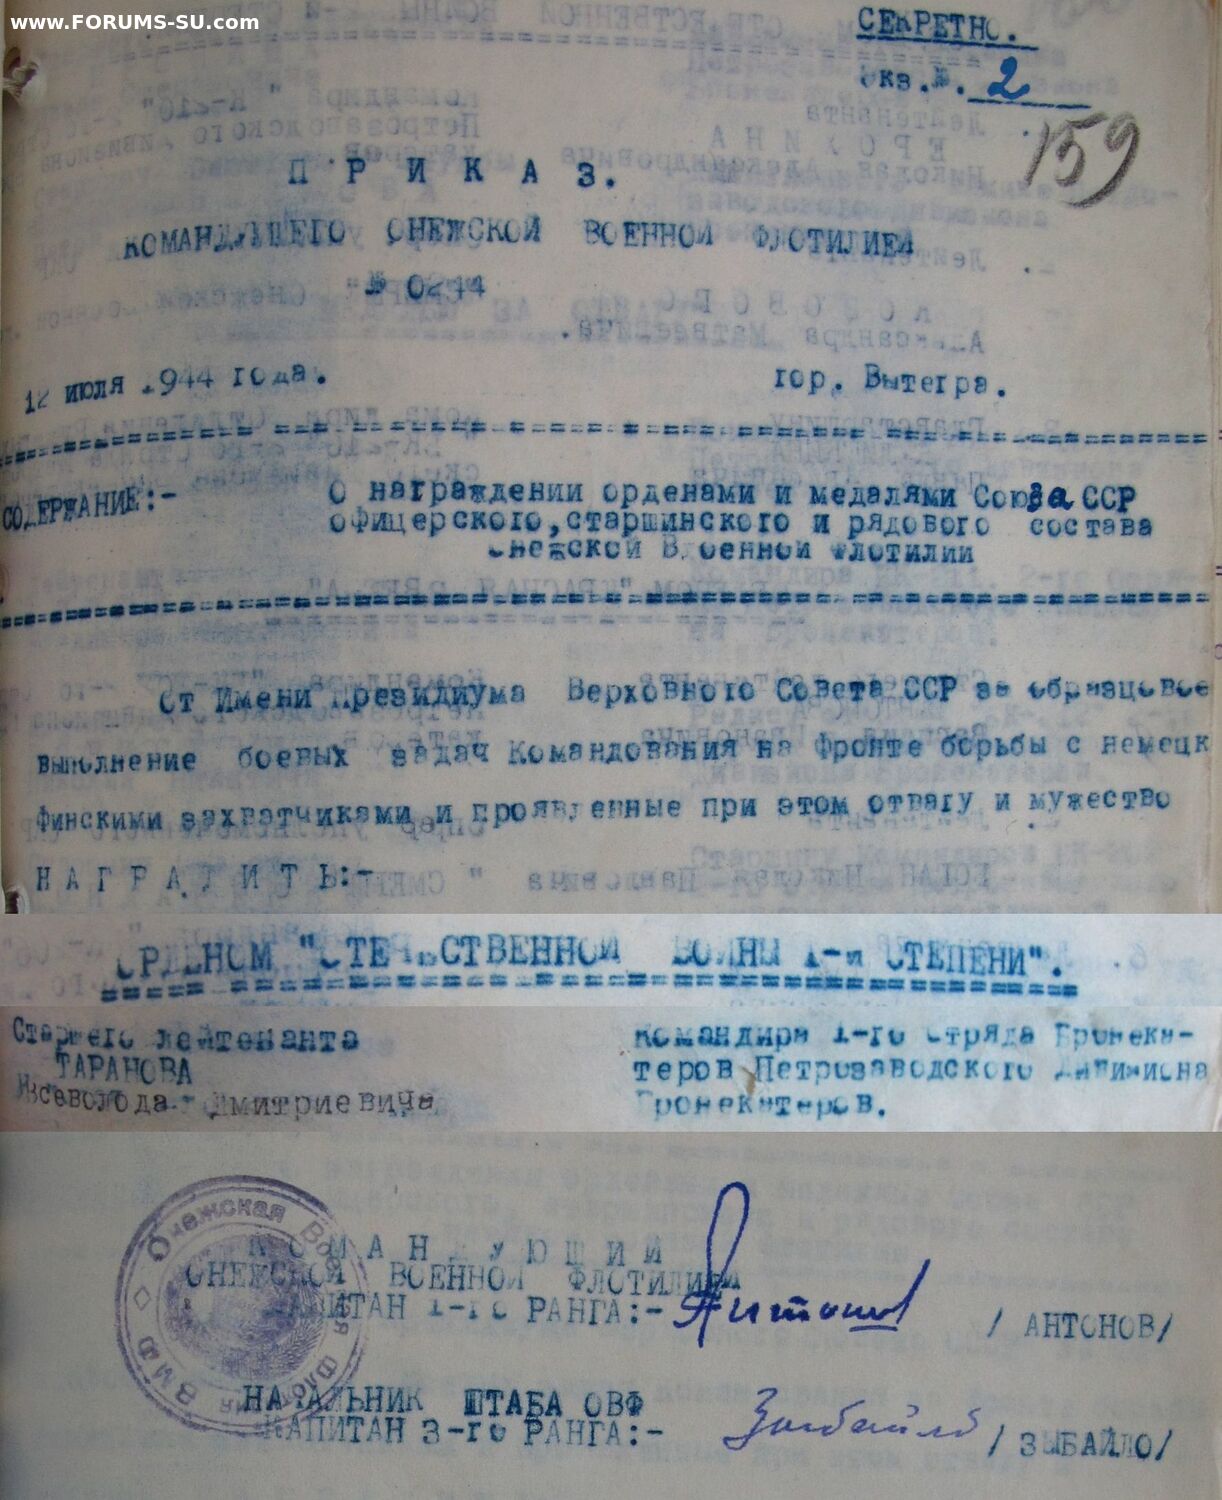 www.FORUMS-SU.com
СЕКРЕТНО.
Экз.№. 2
159
П Р И К А З.
КОМАНДУЮЩЕГО ОНЕЖСКОЙ ВОЕННОЙ ФЛОТИЛИЕЙ
№ 0244
12 июля 1944 года.
гор. Вытегра.
СОДЕРЖАНИЕ:-
О награждении орденами и медалями Союза ССР
офицерского, старшинского и рядового состава
Онежской Военной Флотилии
От Имени Президиума Верховного Совета ССР за образцовое
выполнение боевых задач Командования на Фронте борьбы с немецк
финскими захватчиками и проявленные при этом отвагу и мужество
Н А Г Р А Д И Т Ь:-
ОРДЕНОМ "ОТЕЧЕСТВЕННОЙ ВОЙНЫ 1-й СТЕПЕНИ".
Старшего лейтенанта
ТАРАНОВА
Всеволода Дмитриевича
Командира 1-го Отряда Бронека-
теров Петрозаводского Дивизиона
Бронекатеров.
Онежская Военная Флотилия ВМФ
К О М А Н Д У Ю Щ И Й
ОНЕЖСКОЙ ВОЕННОЙ ФЛОТИЛИЕЙ
КАПИТАН 1-го РАНГА:- Антонов / АНТОНОВ/
НАЧАЛЬНИК ШТАБА ОВФ
КАПИТАН 3-го РАНГА:- Зыбайло / ЗЫБАЙЛО/